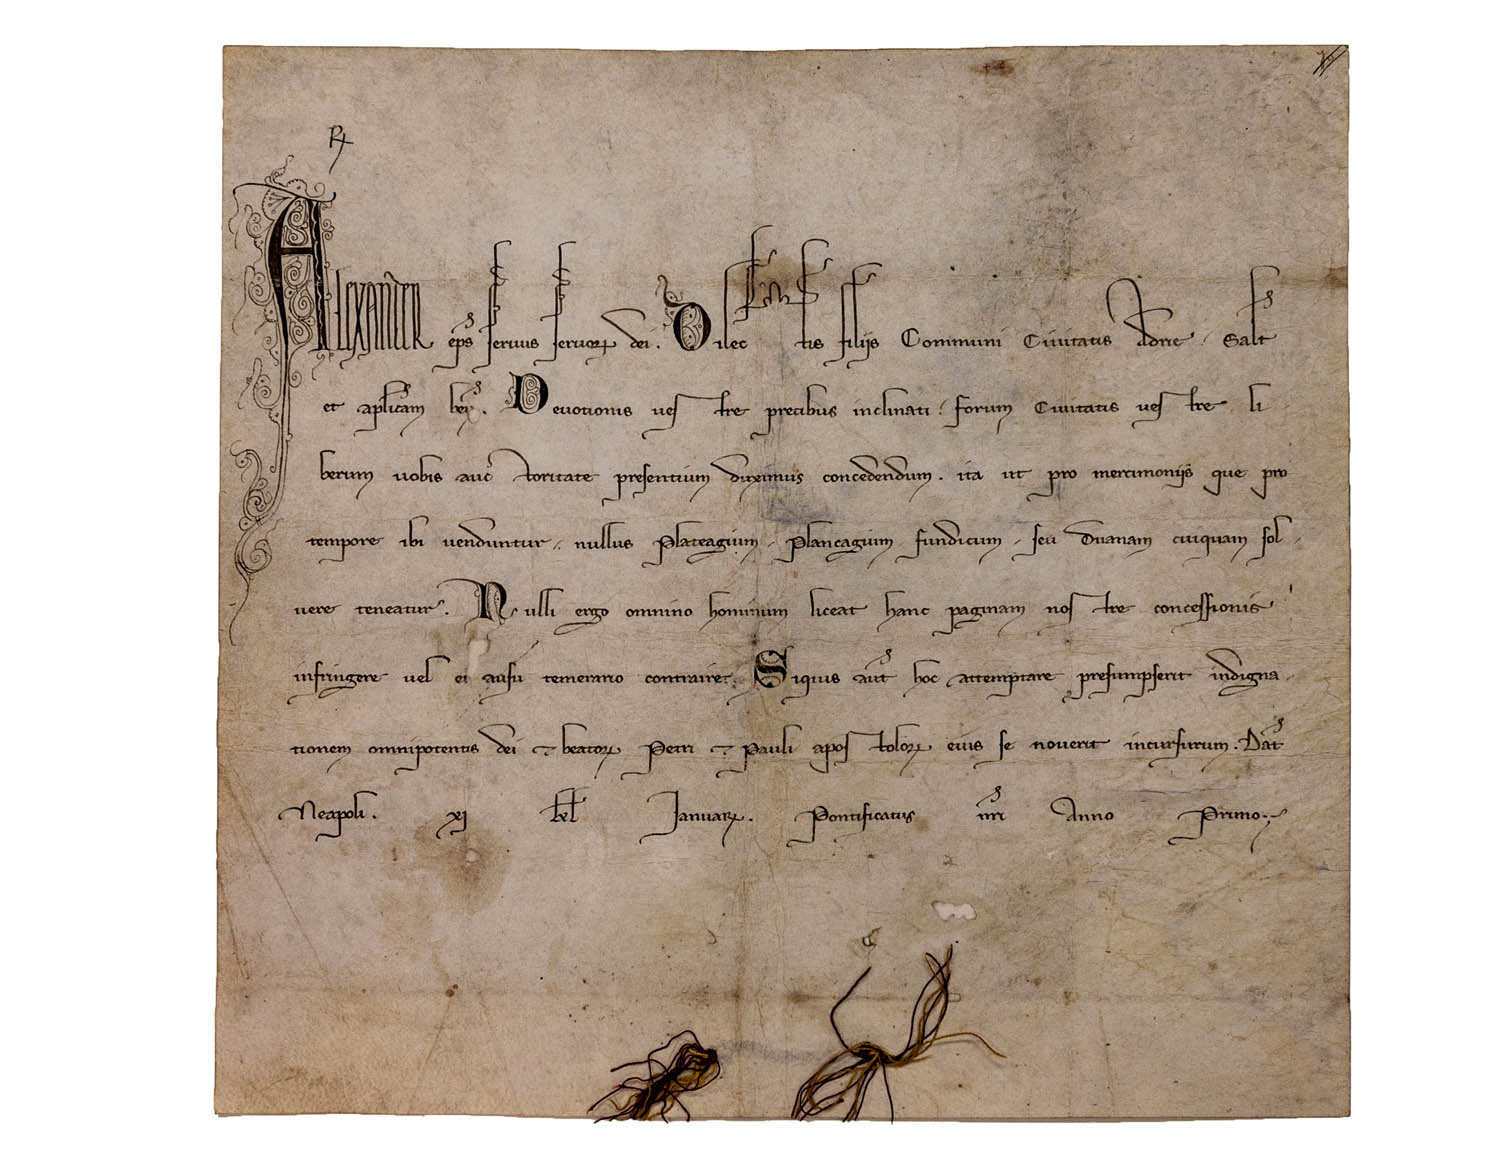 R
ALEXANDER eps servus servorꝝ dei. Dilectis filiis Communi Civitatis Adrie. Salt
et aplicam ben. Devotionis vestre precibus inclinati. forum Civitatis vestre li
berum vobis auctoritate presentium duximus concedendum. ita ut pro mercimoniis que pro
tempore ibi venduntur. nullus plateagium. plancagium fundicum. seu duanam cuiquam sol
vere teneatur. Nulli ergo omnino hominum liceat hanc paginam nostre concessionis
infringere vel ei ausu temerario contraire. Siquis aut hoc attemptare presumpserit indigna
tionem omnipotentis dei ⁊ beatorꝝ Petri ⁊ Pauli apostolorꝝ eius se noverit incursurum. Dat
Neapoli. xj kl Januarꝝ. Pontificatus nri Anno Primo.